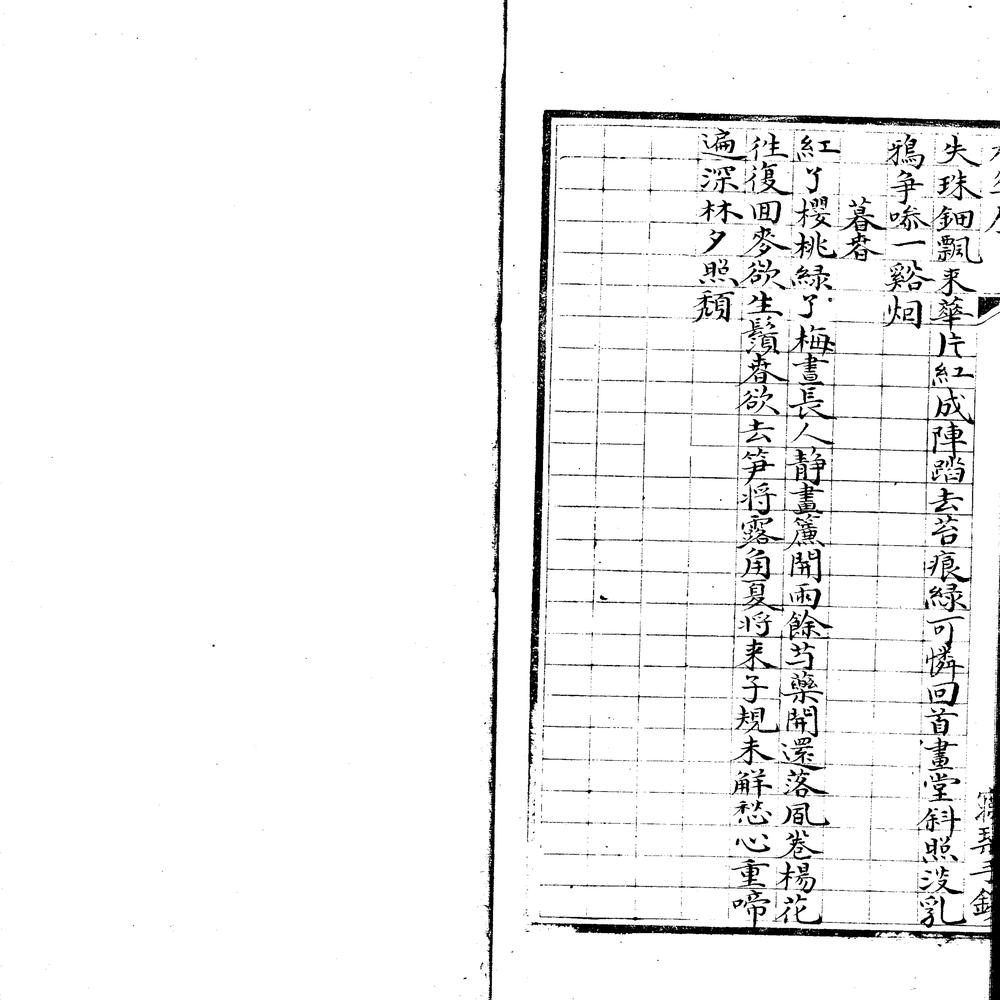 失珠鈿飄来華片紅成陣踏去苔痕緑可憐回首畫堂斜照没乳
鴉争喙一谿烟
暮春
紅了櫻桃緑了梅晝長人静畫簾開雨餘芍藥開還落風卷楊花
徃復囬麥欲生鬚春欲去笋将露角夏将来子規未解愁心重啼
遍深林夕照頹
手